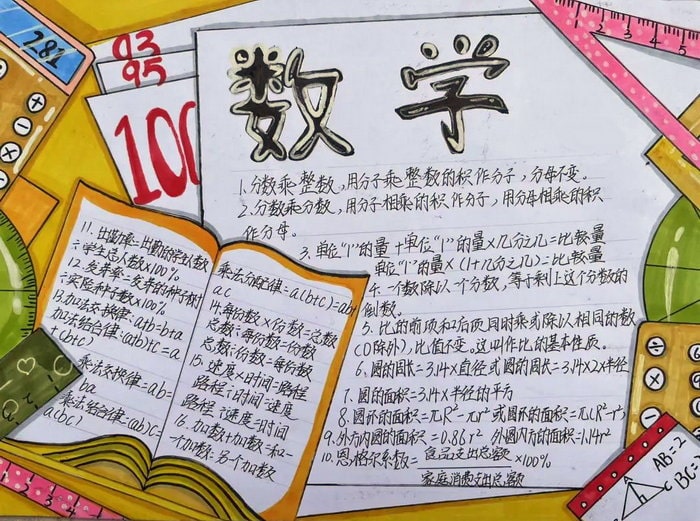 781
93
95
100
数学
1.分数乘整数,用分子乘整数的积作分子,分母不变。
2.分数乘分数,用分子相乘的积作分子,用分母相乘的积
作分母。
3.单位"1"的量+单位"1"的量×几分之几=比较量
单位"1"的量×(1+几分之几)=比较量
4.一个数除以一个分数,等于乘上这个分数的
倒数。
5.比的前项和后项同时乘或除以相同的数
(0除外),比值不变。这叫作比的基本性质。
6.圆的周长=3.14×直径或圆的周长=3.14×2×半径
7.圆的面积=3.14×半径的平方
8.圆环的面积=πR²-πr²或圆环的面积=π(R²-r²)
9.外方内圆的面积=0.86r² 外圆内方的面积=1.14r²
10.恩格尔系数=食品支出总额
×100%
家庭消费支出总额
11.出勤率=出勤的学生人数
÷学生总人数×100%
12.发芽率=发芽的种子数
÷实验种子数×100%
13.加法交换律:a+b=b+a
加法结合律:(a+b)+c=a
+(b+c)
乘法交换律=ab=
ba
乘法结合律=(ab)c=
a(bc)
乘法分配律=a(b+c)=ab+
ac
14.每份数×份数=总数
总数÷每份数=份数
总数÷份数=每份数
15.速度×时间=路程
路程÷时间=速度
路程÷速度=时间
16.加数+加数=和-一
个加数=另个加数
1 2 3 4 5
AB=2
BC=
C